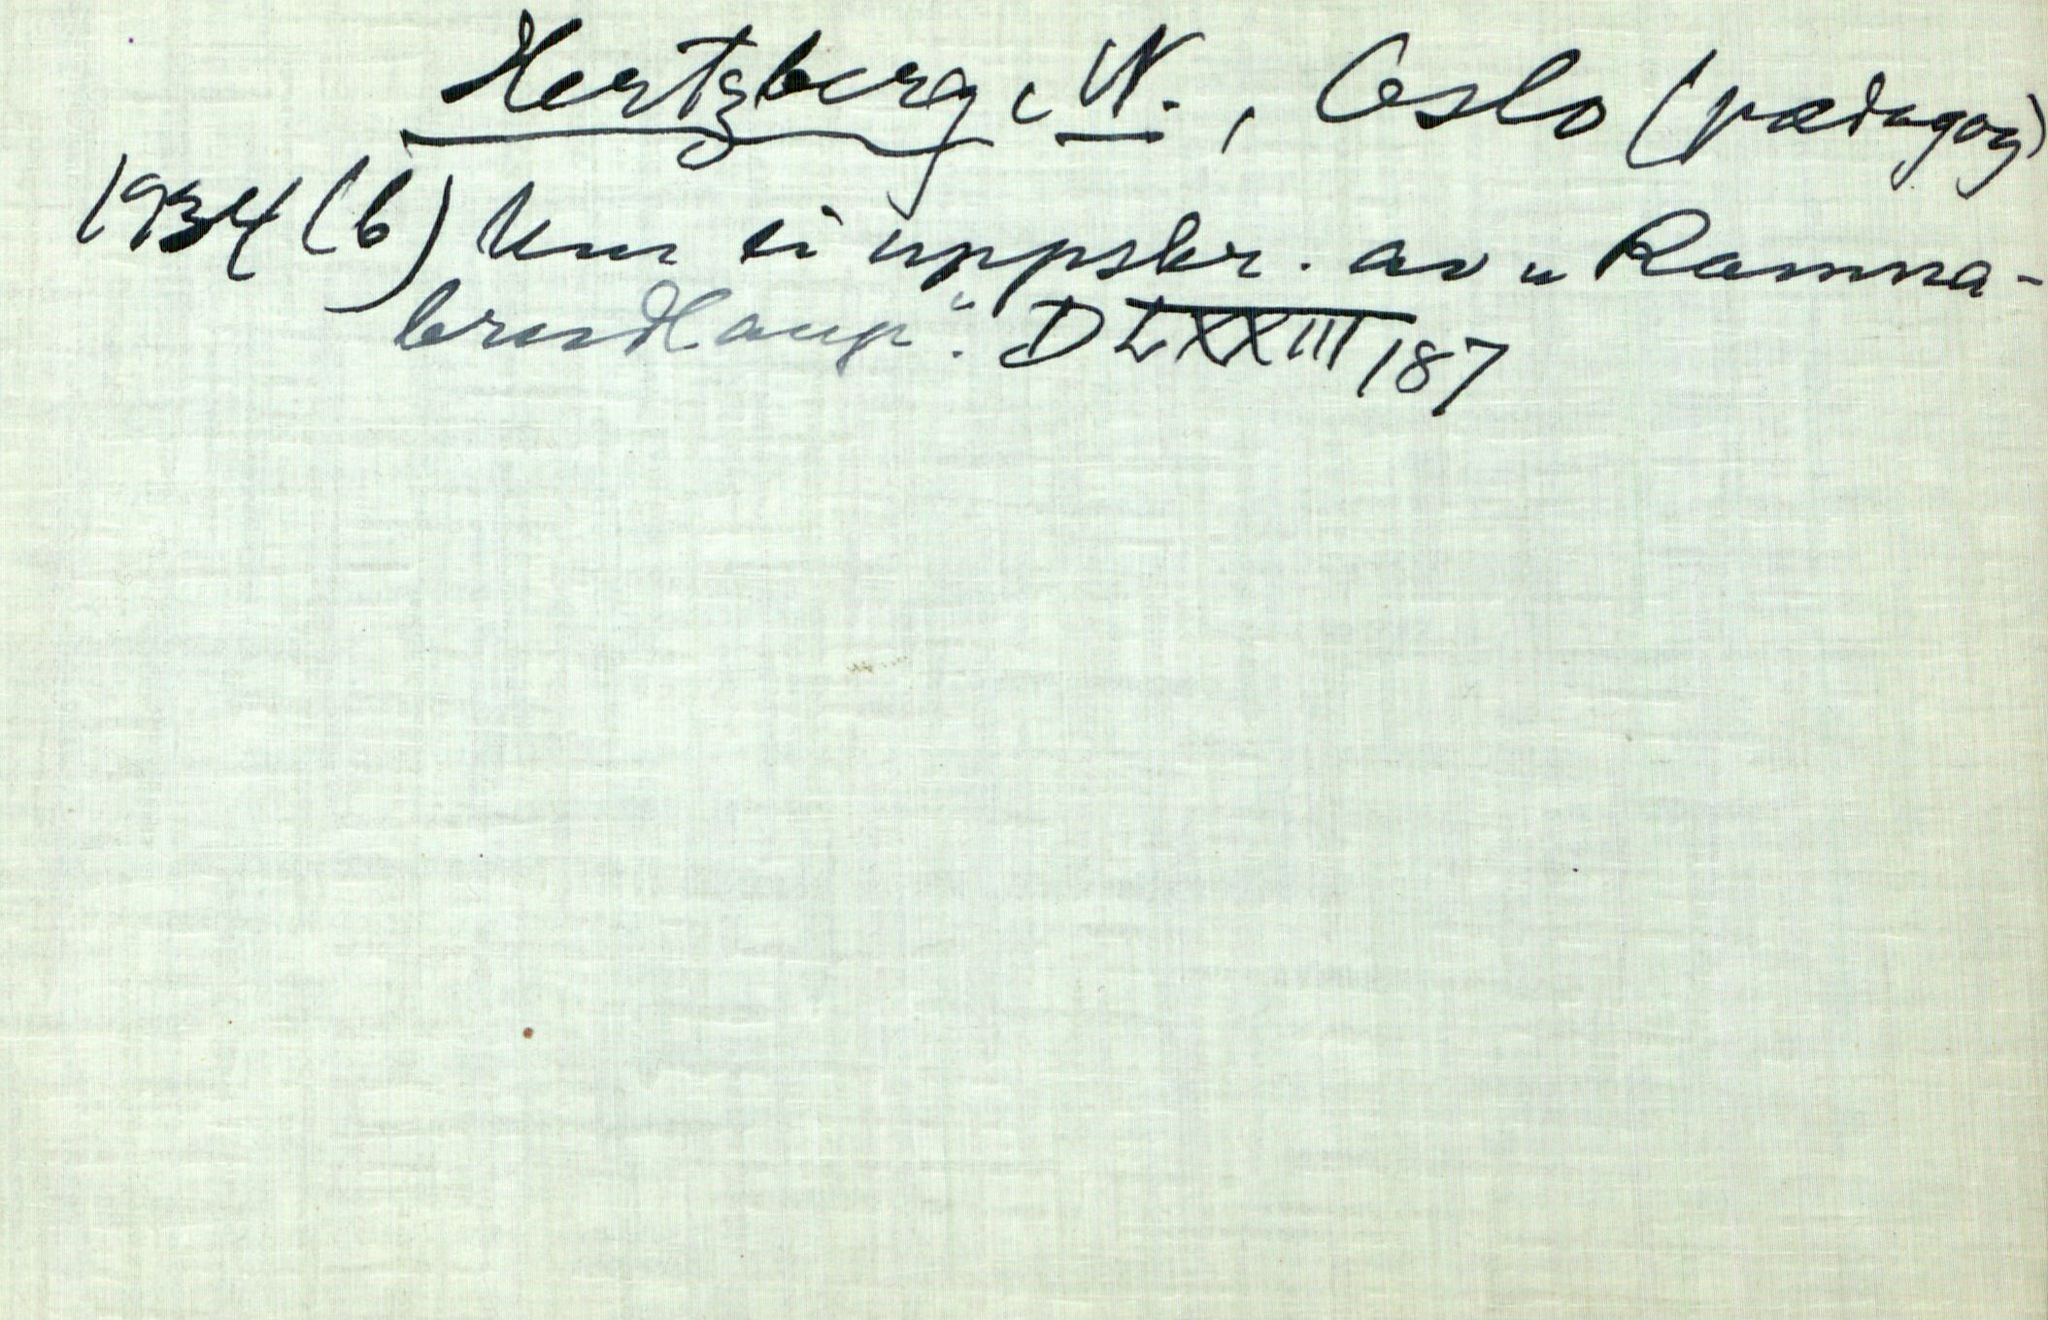 Hertzberg, N., Oslo (pædagog)
1934 (b) Um ei uppskr. av „Ramna-
brudlaup“. D LXXIII 187